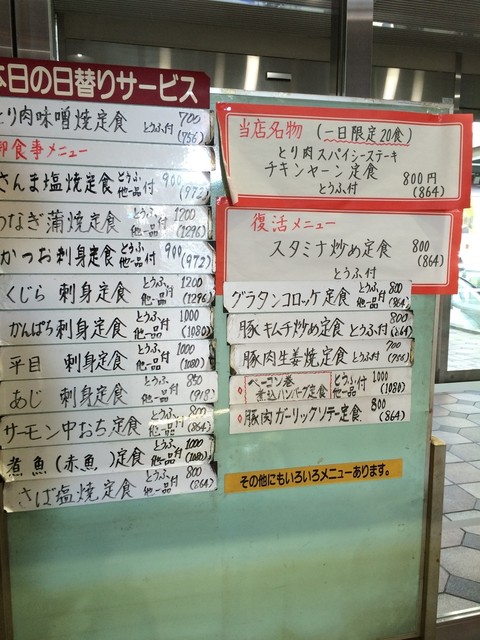 本日の日替りサービス
とり肉味噌焼定食 とうふ付 700 (756)
御食事メニュー
さんま塩焼定食 とうふ他一品付 900 (972)
うなぎ蒲焼定食 とうふ他一品付 1200 (1296)
かつお刺身定食 とうふ他一品付 900 (972)
くじら刺身定食 とうふ他一品付 1200 (1296)
かんぱち刺身定食 とうふ他一品付 1000 (1080)
平目 刺身定食 とうふ他一品付 1000 (1080)
あじ 刺身定食 とうふ他一品付 850 (918)
サーモン中おち定食 とうふ他一品付 800 (864)
煮魚(赤魚 )定食 とうふ他一品付 1000 (1080)
さば塩焼定食 とうふ他一品付 800 (864)
当店名物 (一日限定20食)
とり肉スパイシーステーキ
チキンヤーン定食 800円
とうふ付 (864)
復活メニュー
スタミナ炒め定食 800
(864)
とうふ付
グラタンコロッケ定食 とうふ付 800 (864)
豚キムチ炒め定食 とうふ付 800 (864)
豚肉生姜焼定食 とうふ付 700 (756)
ベーコン巻
煮込ハンバーグ定食 とうふ他一品付 1000 (1080)
豚肉ガーリックソテー定食 800 (864)
その他にもいろいろメニューあります。